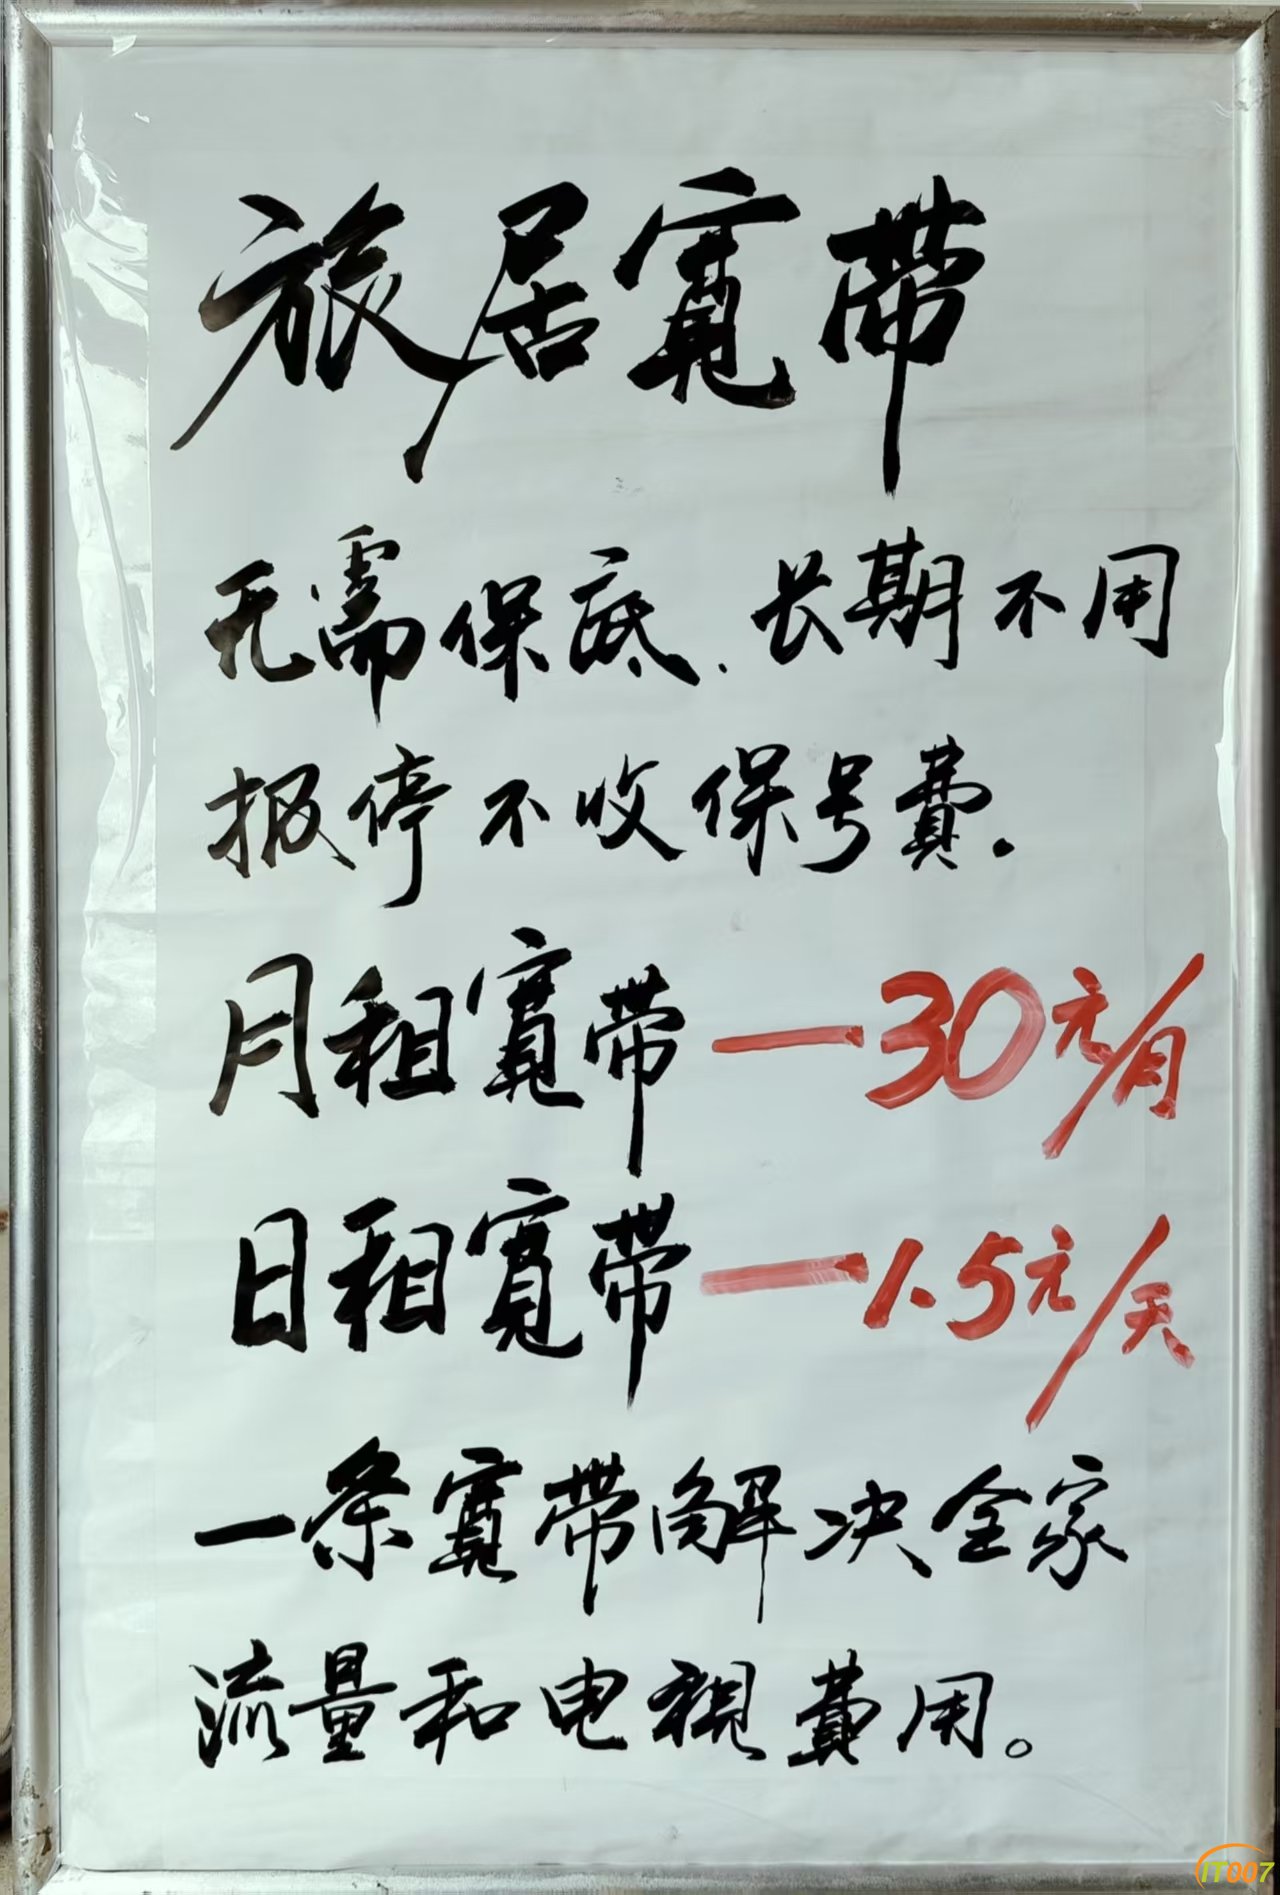 旅居寬帶
无需保底、长期不用
报停不收保号費.
月租寬帶—30元/月
日租寬帶—1.5元/天
一条寬帶解决全家
流量和电視費用。
IT007